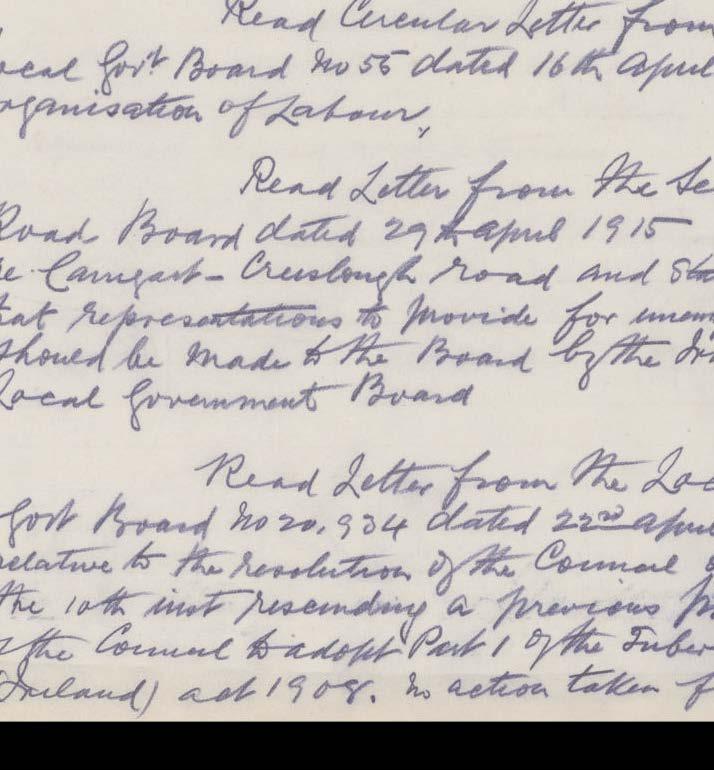 Read Circular Letter from
ocal Govt Board No 55 dated 16th April
rganisation of Labour,
Read Letter from the Se
Road Board dated 29th April 1915
re Carrigart - Creeslough road and sta
hat representations to provide for unem
should be made to the Board by the Iri
Local Government Board
Read Letter from the Loc
Govt Board No 20,934 dated 22nd April
relative to the resolution of the Council o
the 10th inst rescinding a previous
of the Council to adopt Part 1 of the Tuber
(Ireland) Act 1908. No action taken f